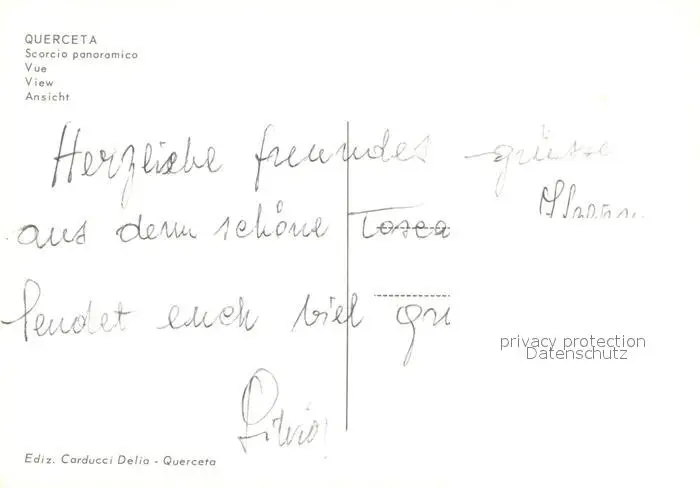 QUERCETA
Scorcio panoramico
Vue
View
Ansicht
Herzliche freundes grüsse
aus dem schöne Tosca
sendet euch viel grü
Silvia
privacy protection
Datenschutz
Ediz. Carducci Delia - Querceta